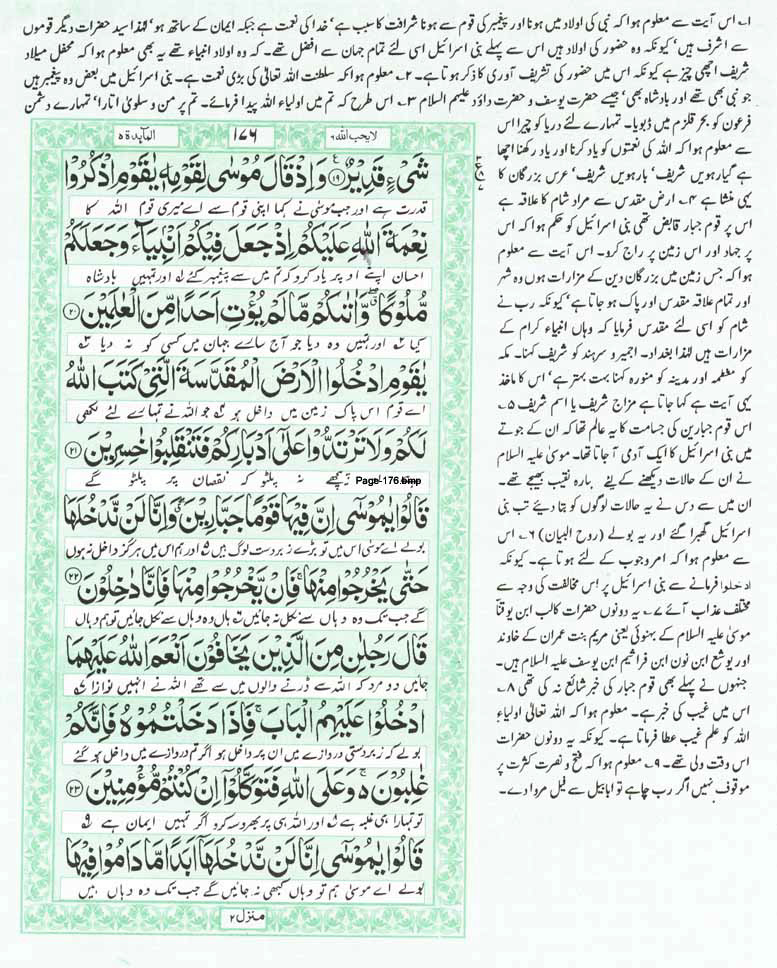 ۱؎ اس آیت سے معلوم ہوا کہ نبی کی اولاد میں ہونا اور پیغمبر کی قوم سے ہونا شرافت کا سبب ہے، خدا کی نعمت ہے جبکہ ایمان کے ساتھ ہو، لہٰذا سید حضرات دیگر قوموں
سے اشرف ہیں، کیونکہ وہ حضور کی اولاد ہیں اس سے پہلے بنی اسرائیل اسی لئے تمام جہان سے افضل تھے۔ کہ وہ اولاد انبیاء تھے یہ بھی معلوم ہوا کہ محفل میلاد
شریف اچھی چیز ہے کیونکہ اس میں حضور کی تشریف آوری کا ذکر ہوتا ہے۔ ۲؎ معلوم ہوا کہ سلطنت اللہ تعالیٰ کی بڑی نعمت ہے۔ بنی اسرائیل میں بعض وہ پیغمبر ہیں
جو نبی بھی تھے اور بادشاہ بھی، جیسے حضرت یوسف و حضرت داؤد علیہم السلام ۳؎ اس طرح کہ تم میں اولیاء اللہ پیدا فرمائے۔ تم پر من و سلویٰ اتارا، تمہارے دشمن
فرعون کو بحر قلزم میں ڈبویا۔ تمہارے لئے دریا کو چیرا اس
سے معلوم ہوا کہ اللہ کی نعمتوں کو یاد کرنا اور یاد رکھنا اچھا
ہے گیارہویں شریف، بارہویں شریف، عرس بزرگان کا
یہی منشا ہے ۴؎ ارض مقدس سے مراد شام کا علاقہ ہے
اس پر قوم جبار قابض تھی بنی اسرائیل کو حکم ہوا کہ اس
پر جہاد اور اس زمین پر راج کرو۔ اس آیت سے معلوم
ہوا کہ جس زمین میں بزرگان دین کے مزارات ہوں وہ شہر
اور تمام علاقہ مقدس اور پاک ہو جاتا ہے، کیونکہ رب نے
شام کو اسی لئے مقدس فرمایا کہ وہاں انبیاء کرام کے
مزارات ہیں لہٰذا بغداد۔ اجمیر و سرہند کو شریف کہنا۔ مکہ
کو معظمہ اور مدینہ کو منورہ کہنا بہت بہتر ہے، اس کا ماخذ
یہی آیت ہے کہا جاتا ہے مزاج شریف یا اسم شریف ۵؎
اس قوم جبارین کی جسامت کا یہ عالم تھا کہ ان کے جوتے
میں بنی اسرائیل کا ایک آدمی آ جاتا تھا۔ موسیٰ علیہ السلام
نے ان کے حالات دیکھنے کے لیے بارہ نقیب بھیجے تھے۔
ان میں سے دس نے یہ حالات لوگوں کو بتا دیئے تب بنی
اسرائیل گھبرا گئے اور یہ بولے (روح البیان) ۶؎ اس
سے معلوم ہوا کہ امر وجوب کے لئے ہوتا ہے۔ کیونکہ
ادخلوا فرمانے سے بنی اسرائیل پر اس مخالفت کی وجہ سے
مختلف عذاب آئے ۷؎ یہ دونوں حضرات کالب ابن یوقنا
موسیٰ علیہ السلام کے بہنوئی یعنی مریم بنت عمران کے خاوند
اور یوشع ابن نون ابن فراشیم ابن یوسف علیہ السلام ہیں۔
جنہوں نے پہلے بھی قوم جبار کی خبر شائع نہ کی تھی ۸؎
اس میں غیب کی خبر ہے۔ معلوم ہوا کہ اللہ تعالیٰ اولیاء
اللہ کو علم غیب عطا فرماتا ہے۔ کیونکہ یہ دونوں حضرات
اس وقت ولی تھے۔ ۹؎ معلوم ہوا کہ فتح و نصرت کثرت پر
موقوف نہیں اگر رب چاہے تو ابابیل سے فیل مروا دے۔
لا یحب اللہ ۶ ۱۷۶ المآئدة ۵
شَىْءٍ قَدِيْرٌ ﴿۱۹﴾ وَ اِذْ قَالَ مُوْسٰى لِقَوْمِهٖ يٰقَوْمِ اذْكُرُوْا
قدرت ہے اور جب موسیٰ نے کہا اپنی قوم سے اے میری قوم اللہ کا
نِعْمَةَ اللّٰهِ عَلَيْكُمْ اِذْ جَعَلَ فِيْكُمْ اَنْۢبِيَآءَ وَ جَعَلَكُمْ
احسان اپنے اوپر یاد کرو کہ تم میں سے پیغمبر کئے اور تمہیں بادشاہ
مُّلُوْكًا وَّ اٰتٰىكُمْ مَّا لَمْ يُؤْتِ اَحَدًا مِّنَ الْعٰلَمِيْنَ ﴿۲۰﴾
کیا اور تمہیں وہ دیا جو آج سارے جہان میں کسی کو نہ دیا
يٰقَوْمِ ادْخُلُوا الْاَرْضَ الْمُقَدَّسَةَ الَّتِیْ كَتَبَ اللّٰهُ
اے قوم اس پاک زمین میں داخل ہو جو اللہ نے تمہارے لئے لکھی
لَكُمْ وَ لَا تَرْتَدُّوْا عَلٰۤى اَدْبَارِكُمْ فَتَنْقَلِبُوْا خٰسِرِيْنَ ﴿۲۱﴾
پیچھے نہ پلٹو کہ نقصان پر پلٹو گے
Page-176.bmp
قَالُوْا يٰمُوْسٰۤى اِنَّ فِيْهَا قَوْمًا جَبَّارِيْنَ وَ اِنَّا لَنْ نَّدْخُلَهَا
بولے اے موسیٰ اس میں تو بڑے زبردست لوگ ہیں اور ہم اس میں ہرگز داخل نہ ہوں
حَتّٰى يَخْرُجُوْا مِنْهَا فَاِنْ يَّخْرُجُوْا مِنْهَا فَاِنَّا دٰخِلُوْنَ ﴿۲۲﴾
گے جب تک وہ وہاں سے نکل نہ جائیں ہاں وہ وہاں سے نکل جائیں تو ہم وہاں
قَالَ رَجُلٰنِ مِنَ الَّذِيْنَ يَخَافُوْنَ اَنْعَمَ اللّٰهُ عَلَيْهِمَا
جائیں دو مرد کہ اللہ سے ڈرنے والوں میں سے تھے اللہ نے انہیں نوازا
ادْخُلُوْا عَلَيْهِمُ الْبَابَ فَاِذَا دَخَلْتُمُوْهُ فَاِنَّكُمْ
بولے کہ زبردستی دروازے میں ان پر داخل ہو اگر تم دروازے میں داخل ہو گئے
غٰلِبُوْنَ وَ عَلَى اللّٰهِ فَتَوَكَّلُوْۤا اِنْ كُنْتُمْ مُّؤْمِنِيْنَ ﴿۲۳﴾
تو تمہارا ہی غلبہ ہے اور اللہ ہی پر بھروسہ کرو اگر تمہیں ایمان ہے ۹
قَالُوْا يٰمُوْسٰۤى اِنَّا لَنْ نَّدْخُلَهَاۤ اَبَدًا مَّا دَامُوْا فِيْهَا
بولے اے موسیٰ ہم تو وہاں کبھی نہ جائیں گے جب تک وہ وہاں ہیں
منزل ۲